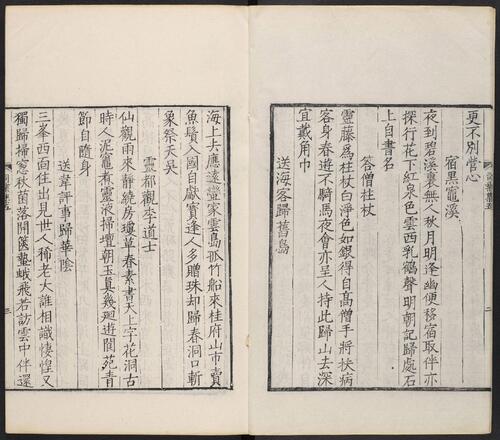 更不別營心
宿黑竈溪
夜到碧溪裏無人秋月明逢幽便移宿取伴亦
探行花下紅泉色雲西乳鶴聲明朝記歸處石
上自書名
答僧拄杖
靈藤爲拄杖白淨色如銀得自髙僧手將扶病
客身春遊不騎馬夜會亦呈人持此歸山去深
宜戴角巾
送海客歸舊島
二
海上去應遠蠻家雲島孤竹船來桂府山市賣
魚鬚入國自獻寶逢人多贈珠却歸春洞口斬
象祭天吳
靈都觀李道士
仙觀雨來靜繞房瓊草春素書天上字花洞古
時人泥竈煑靈液掃壇朝玉真幾廻遊閬苑青
節自隨身
送韋評事歸華陰
三峯西面住出見世人稀老大誰相識悽惶又
獨歸掃窓秋菌落開篋蟄蛾飛若訪雲中伴還
三